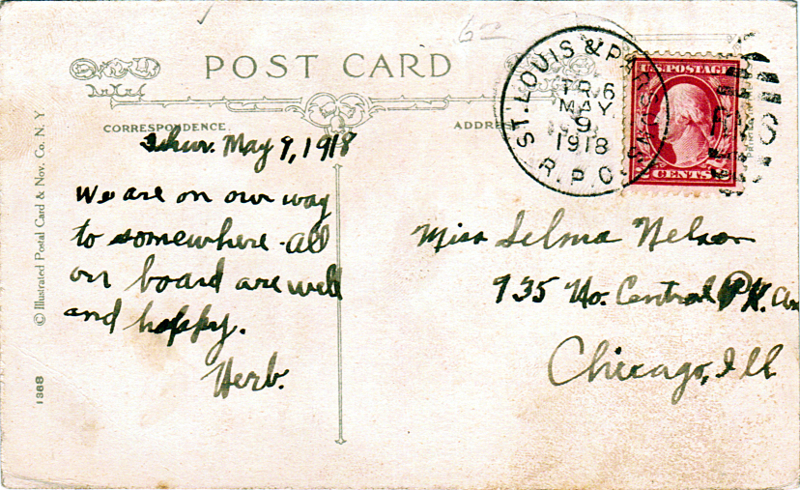 POST CARD
CORRESPONDENCE.
ADDR
ST. LOUIS & PAR
TR 6
MAY
9
1918
R.P.O.
U.S. POSTAGE
2 CENTS
RMS
Thur. May 9, 1918
We are on our way
to somewhere - all
on board are well
and happy.
Herb.
Miss Selma Nelson
935 No. Central PK. Av
Chicago, Ill
© Illustrated Postal Card & Nov. Co. N.Y
1368